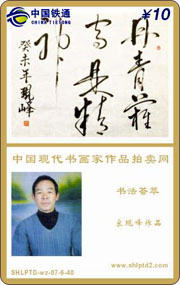 中国铁通
CHINA TIETONG
¥10
丹青难
写是精
神
癸未年晓峰
中国现代书画家作品拍卖网
书法荟萃
作品
www.shlptd2.com
SHLPTD-wz-07-6-40